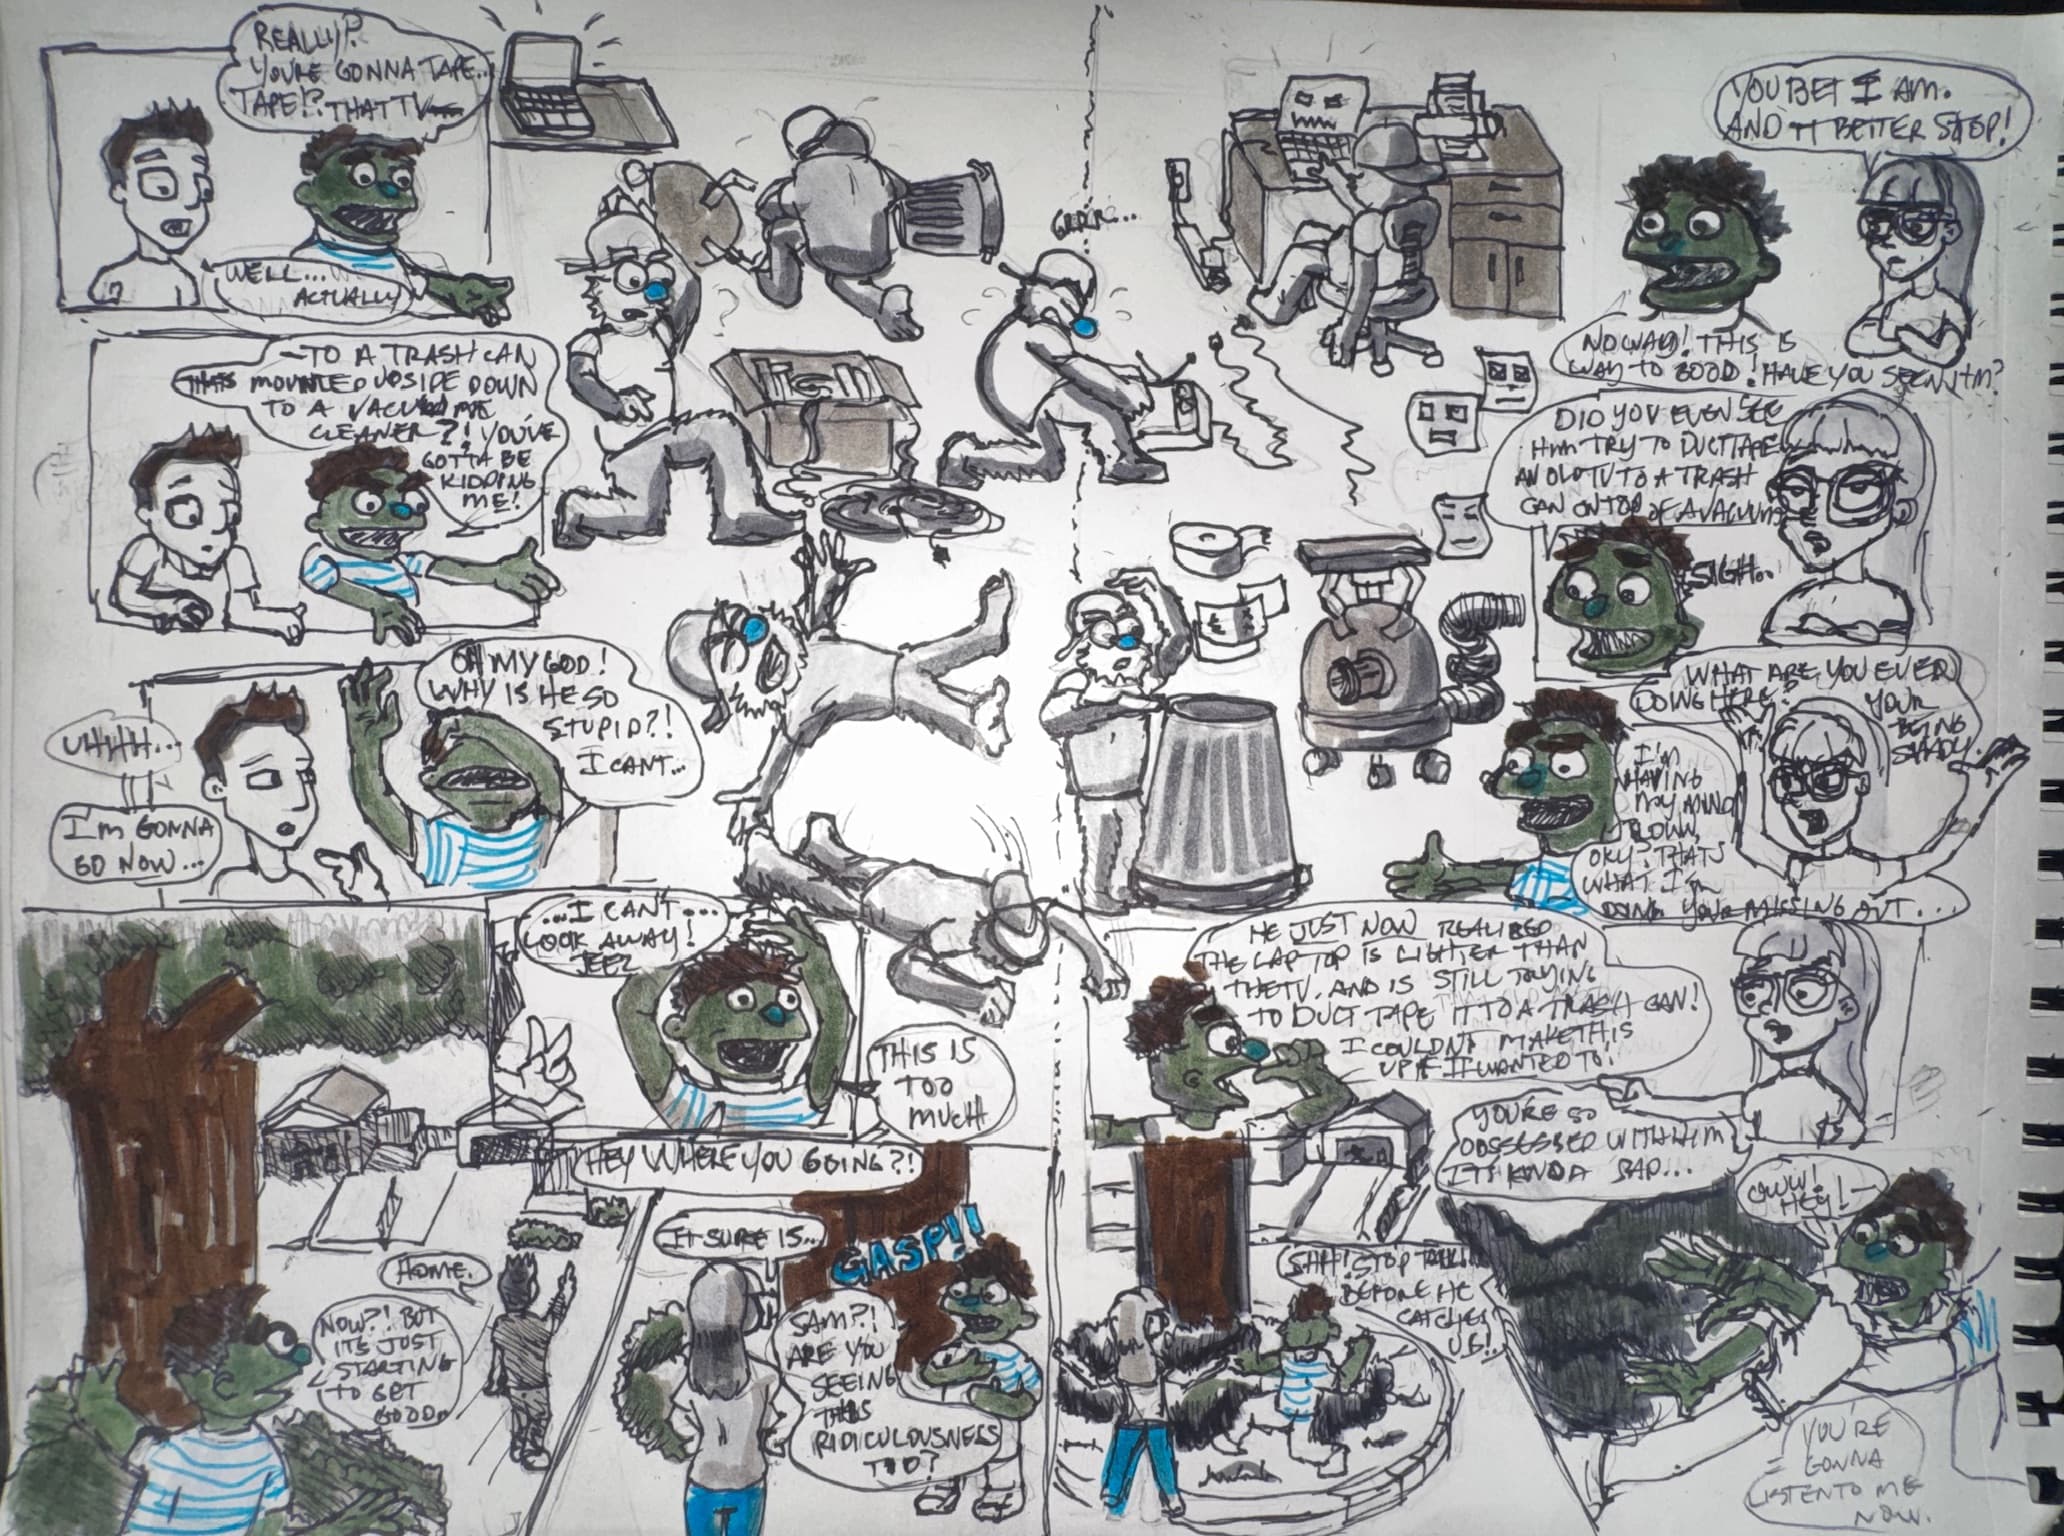 REALLY?
YOU'RE GONNA TAPE..
TAPE!? THAT TV
WELL...
ACTUALLY
-TO A TRASH CAN
THATS MOUNTED UPSIDE DOWN
TO A VACUUME
CLEANER?! YOU'VE
GOTTA BE
KIDDING
ME!
UHHH...
I'm GONNA
GO NOW...
OH MY GOD!
WHY IS HE SO
STUPID?!
I CANT...
...I CAN'T...
LOOK AWAY!
JEEZ
THIS IS
TOO
MUCH
HEY WHERE YOU GOING?!
HOME.
NOW?! BUT
ITS JUST
STARTING
TO GET
GOOD.
IT SURE IS...
GASP!!
SAM?!
ARE YOU
SEEING
THIS
RIDICULOUSNESS
TOO?
GRRR...
YOU BET I AM.
AND IT BETTER STOP!
NO WAY! THIS IS
WAY TO GOOD! HAVE YOU SEEN HIM?
DID YOU EVEN SEE
HIM TRY TO DUCT TAPE
AN OLD TV TO A TRASH
CAN ON TOP OF A VACUUM
SIGH..
WHAT ARE YOU EVER
DOING HERE?
YOUR
BEING
SHADY.
I'm
HAVING
MY MIND
BLOWN,
OKY? THATS
WHAT I'm
DOING YOUR MISSING OUT...
HE JUST NOW REALIZED
THE LAPTOP IS LIGHTER THAN
THE TV. AND IS STILL TRYING
TO DUCT TAPE IT TO A TRASH CAN!
I COULDNT MAKE THIS
UP IF I WANTED TO!
YOU'RE SO
OBSSESSED WITH HIM
IT'S KINDA SAD...
SHH! STOP
BEFORE HE
CATCHES
US!.
OWW!
HEY!-
YOU'RE
GONNA
LISTEN TO ME
NOW.